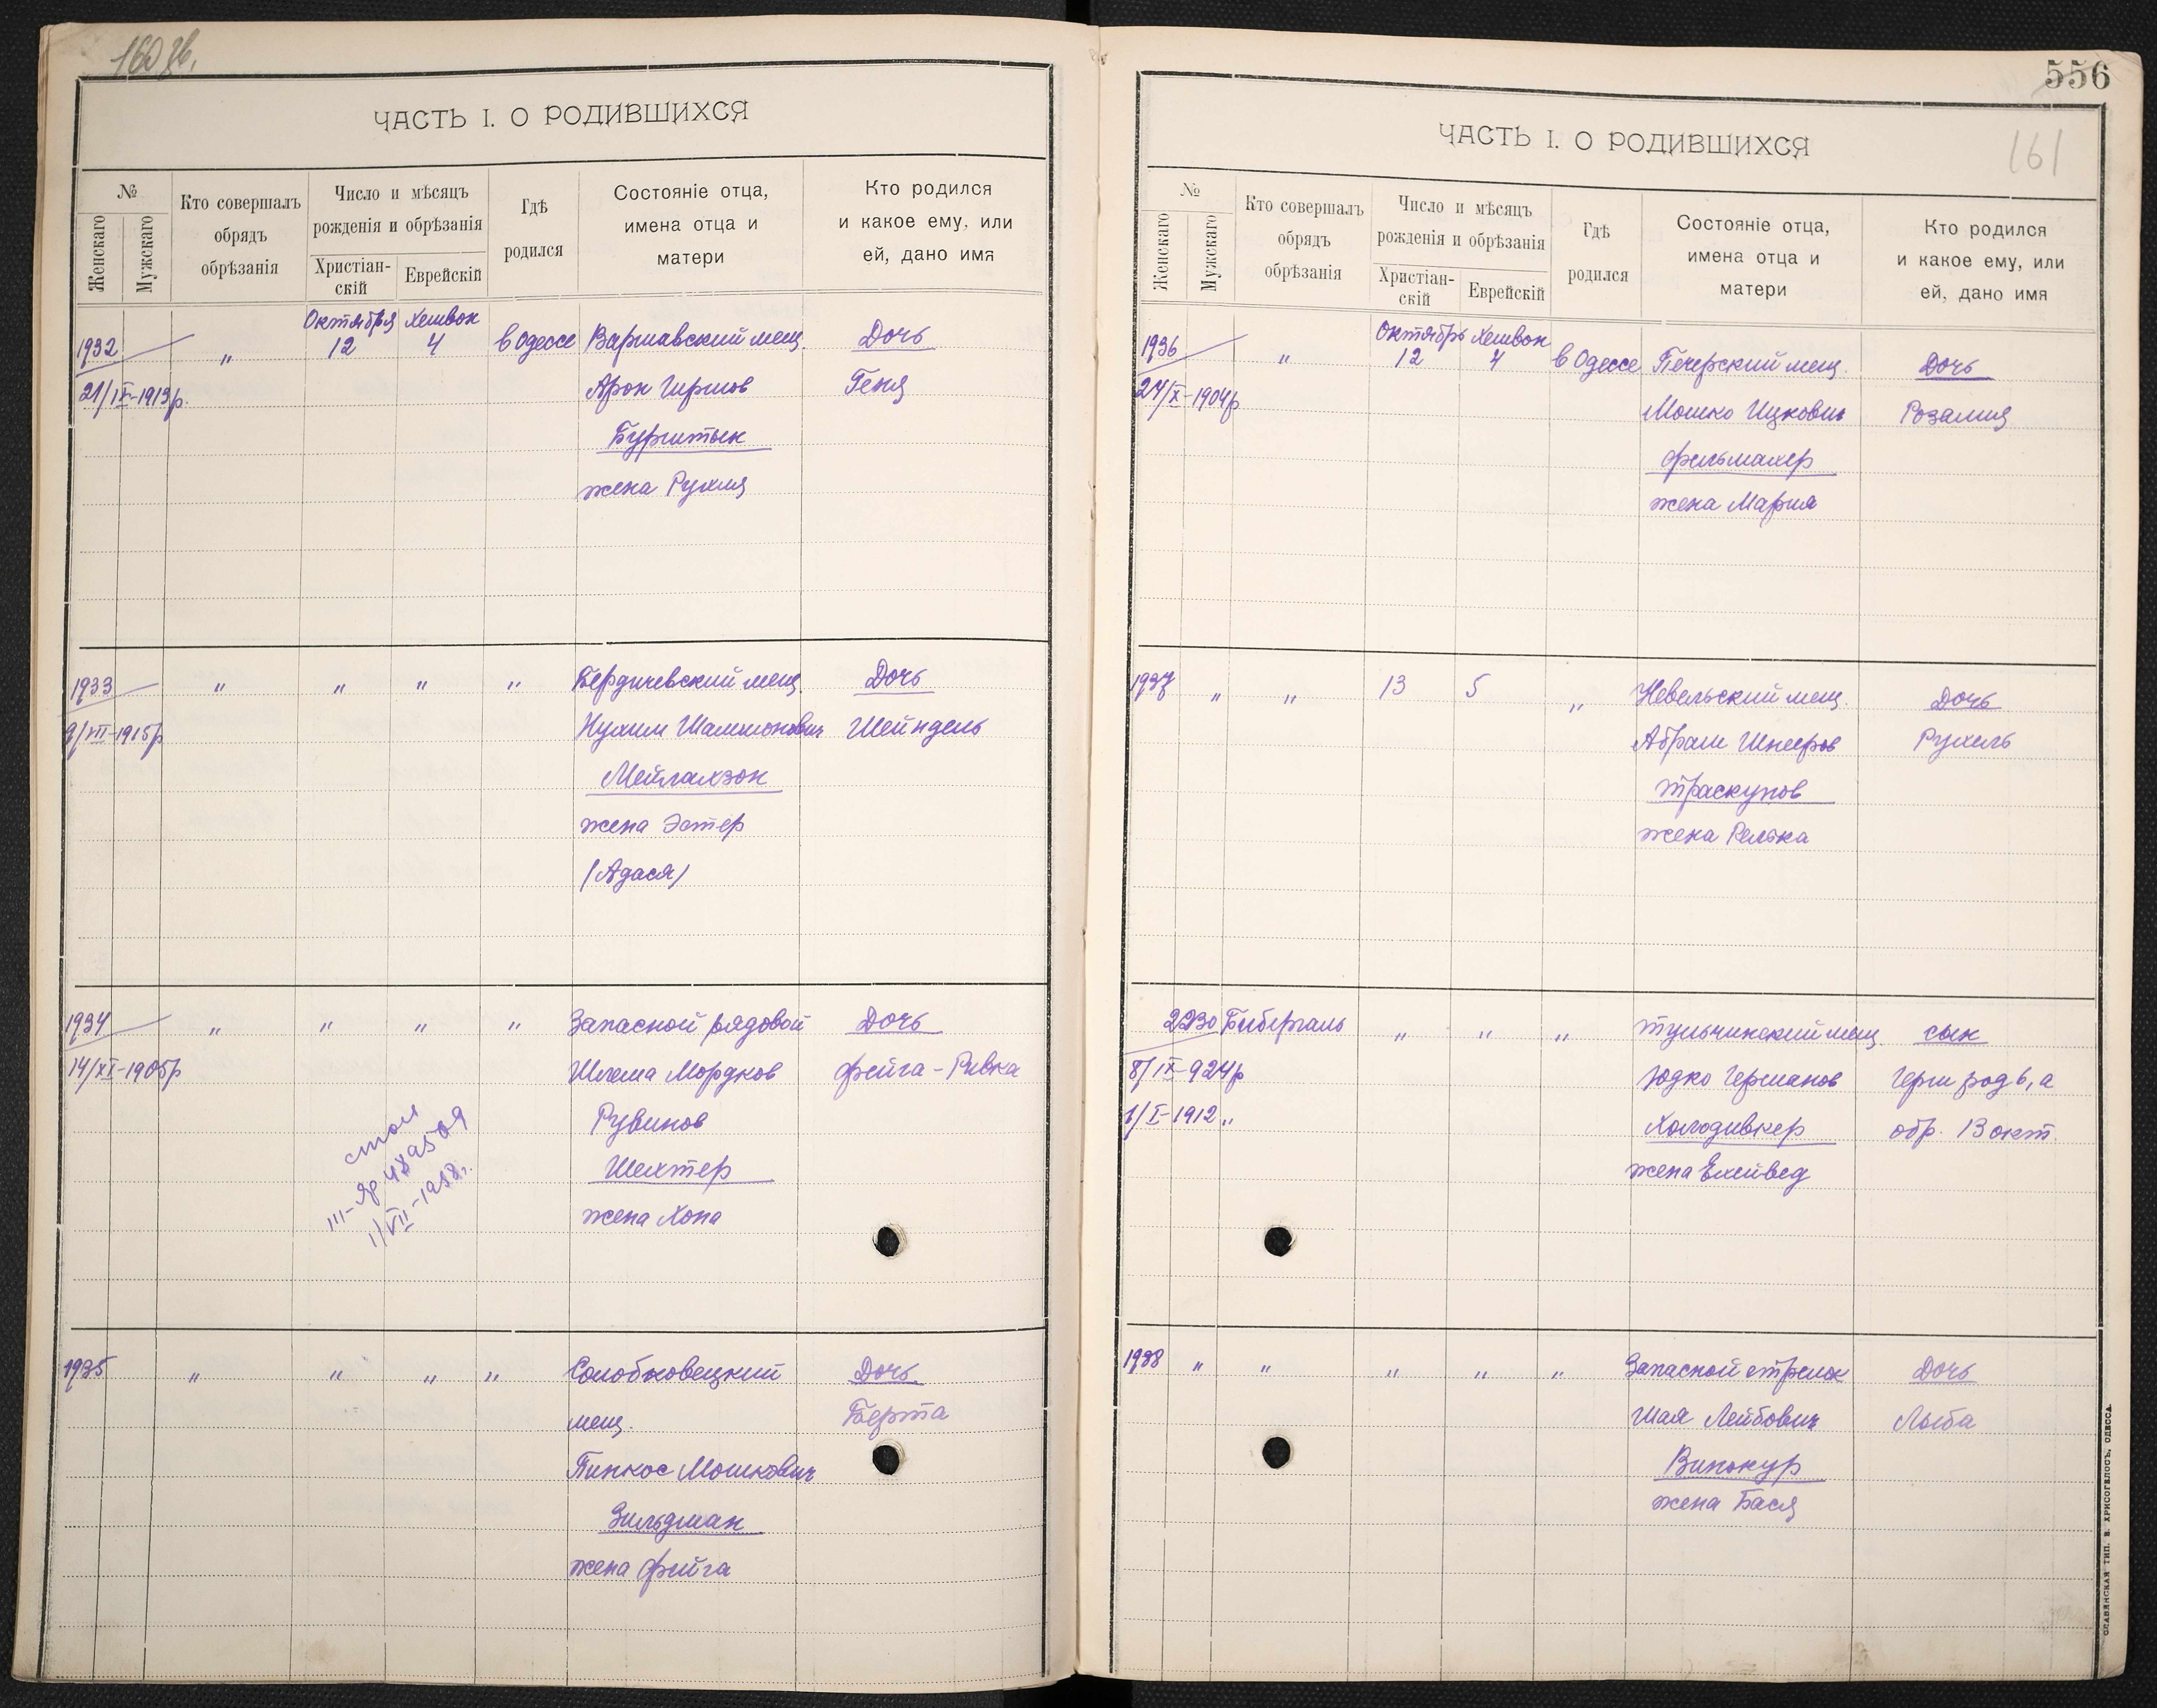 160 зв.
ЧАСТЬ I. О РОДИВШИХСЯ
№
Женскаго
Мужскаго
Кто совершалъ
обрядъ
обрѣзанія
Число и мѣсяцъ
рожденія и обрѣзанія
Христіан-
скій
Еврейскій
Гдѣ
родился
Состояніе отца,
имена отца и
матери
Кто родился
и какое ему, или
ей, дано имя
Октября Хешвон
1932 " 12 4 в Одессе Варшавский мещ. Дочь
21/IX-1913 р. Арон Гиршов Геня
Бурштык
жена Рухля
1933 " " " " Бердичевский мещ. Дочь
9/VII-1915 р Нухим Шамионович Шейндель
Мейлахзон
жена Эстер
(Адася)
1934 " " " " Запасной рядовой Дочь
14/XI-1905 р Шлема Мордков Фейга-Ривка
Рувинов
Шехтер
жена Хона
III-
1/VII-1938 г.
1935 " " " " Солобковецкий Дочь
мещ. Берта
Пинкос Мошкович
Зильдман
жена Фейга
556
161
ЧАСТЬ I. О РОДИВШИХСЯ
№
Женскаго
Мужскаго
Кто совершалъ
обрядъ
обрѣзанія
Число и мѣсяцъ
рожденія и обрѣзанія
Христіан-
скій
Еврейскій
Гдѣ
родился
Состояніе отца,
имена отца и
матери
Кто родился
и какое ему, или
ей, дано имя
Октябрь Хешвон
1936 " 12 4 в Одессе Печерский мещ. Дочь
24/X-1904 р Мошко Ицкович Розалия
Фельмахер
жена Мария
1937 " " 13 5 " Невельский мещ. Дочь
Абрам Шнееров Рухель
Траскунов
жена Релька
2230 Бибергаль " " " Тульчинский мещ сын
8/IX-924 р Юдко Германов Герш род 6, а
1/I-1912 " Холодивкер обр. 13 окт.
жена Ехейвед
1938 " " " " " Запасной стрелок Дочь
Шая Лейбович Лыба
Винокур
жена Бася
СЛАВЯНСКАЯ ТИП. В. ХРИСОГЕЛОСЪ, ОДЕССА.